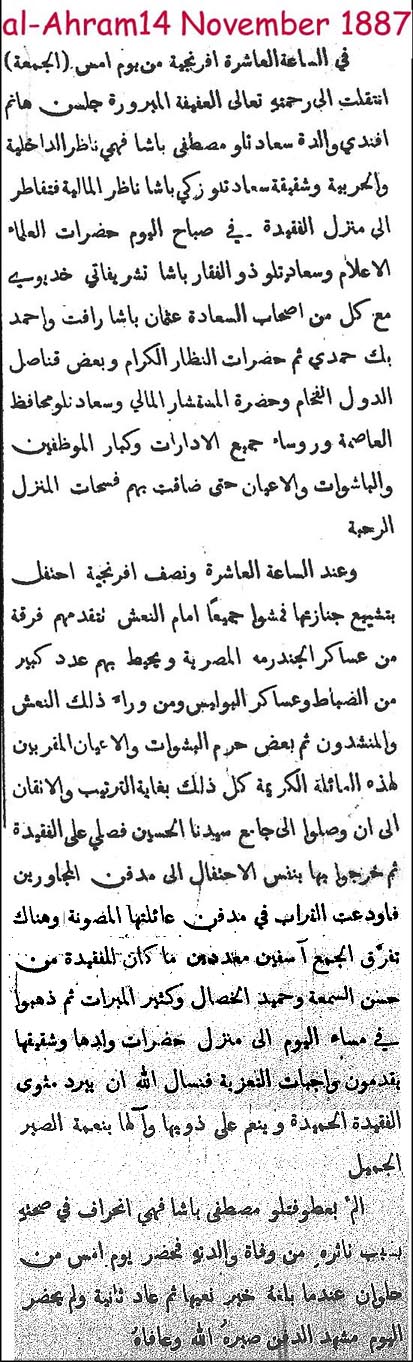 al-Ahram14 November 1887
في الساعة العاشرة افرنجية من يوم امس (الجمعة)
انتقلت الى رحمته تعالى العفيفة المبرورة جلسن هانم
افندي والدة سعادتلو مصطفى باشا فهمي ناظر الداخلية
والحربية وشقيقة سعادتلو زكي باشا ناظر المالية فتقاطر
الى منزل الفقيدة في صباح اليوم حضرات العلماء
الاعلام وسعادتلو ذو الفقار باشا تشريفاتي خديوي
مع كل من اصحاب السعادة عثمان باشا رافت واحمد
بك حمدي ثم حضرات النظار الكرام وبعض قناصل
الدول الفخام وحضرة المستشار المالي وسعادتلو محافظ
العاصمة وروساء جميع الادارات وكبار الموظفين
والباشوات والاعيان حتى ضاقت بهم فسحات المنزل
الرحبة
وعند الساعة العاشرة ونصف افرنجية احتفل
بتشييع جنازتها فمشوا جميعًا امام النعش تتقدمهم فرقة
من عساكر الجندرمه المصرية ويحيط بهم عدد كبير
من الضباط وعساكر البوليس ومن وراء ذلك النعش
والمنشدون ثم بعض حرم الباشوات والاعيان المقربين
لهذه العائلة الكريمة كل ذلك بغاية الترتيب والاتقان
الى ان وصلوا الى جامع سيدنا الحسين فصلي على الفقيدة
ثم خرجوا بها بنفس الاحتفال الى مدفن المجاورين
فاودعت التراب في مدفن عائلتها المصونة وهناك
تفرّق الجمع آسفين معددين ما كان للفقيدة من
حسن السمعة وحميد الخصال وكثير المبرات ثم ذهبوا
في مساء اليوم الى منزل حضرات ولدها وشقيقها
يقدمون واجبات التعزية فنسال الله ان يبرد مثوى
الفقيدة الحميدة وينعم على ذويها وآلها بنعمة الصبر
الجميل
المّ بعطوفتلو مصطفى باشا فهي انحراف في صحته
بسبب تاثره من وفاة والدته فحضر يوم امس من
حلوان عندما بلغهُ خبر نعيها ثم عاد ثانية ولم يحضر
اليوم مشهد الدفن صبرهُ الله وعافاهُ